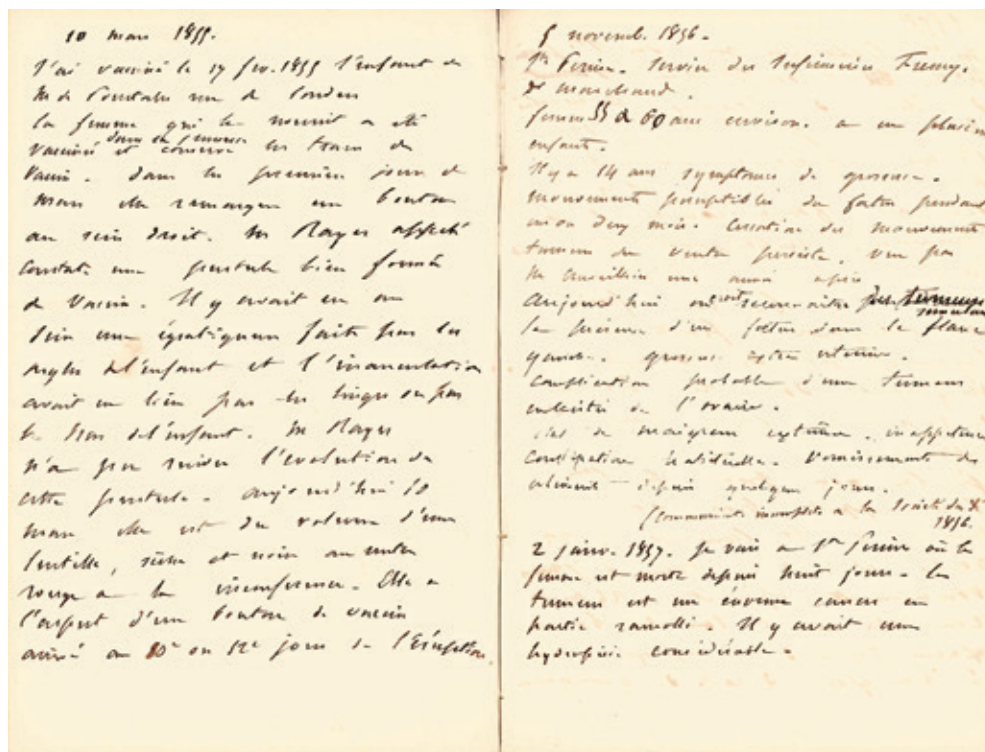 10 mars 1855.
J'ai vacciné le 17 fev. 1855 l'enfant de
M de Pourtalès rue de Londres
la femme qui le nourrit a été
dans sa jeunesse
vacciné et conserve les traces du
vaccin. Dans les premiers jours de
mars elle remarque un bouton
au sein droit. M Rayer appelé
constate une pustule bien formée
de vaccin. Il y avait eu au
sein une égratignure faite par les
ongles de l'enfant et l'inoculation
avait eu lieu par les linges ou par
le bras de l'enfant. M Rayer
n'a pas suivi l'évolution de
cette pustule. aujourd'hui 10
mars elle est du volume d'une
lentille, sèche et noire au centre
rouge a la circonférence. Elle a
l'aspect d'un bouton de vaccin
arrivé au 10e ou 12e jour de l'éruption
5 novemb. 1856.
Ste Perine. Service des Infirmeries
de marchand.
femme 55 à 60 ans environ. a eu plusieurs
enfants.
Il y a 14 ans symptomes de grossesse.
mouvements perceptibles du foetus pendant
un ou deux mois. Cessation des mouvements
tumeur du ventre persiste. vue par
M une année après
aujourd'hui on reconnaitre tumeur
la présence d'un foetus dans le flanc
gauche. grossesse extra utérine.
complication probable d'une tumeur
de l'ovaire.
état de maigreur extrême. inappétence
Constipation habituelle. Vomissements des
aliments depuis quelques jours.
(Communiqué a la Société de
1856.
2 janv. 1857. Je vais a Ste Perine où la
femme est morte depuis huit jours. La
tumeur est un énorme cancer en
partie ramolli. Il y avait une
hydropisie considérable.